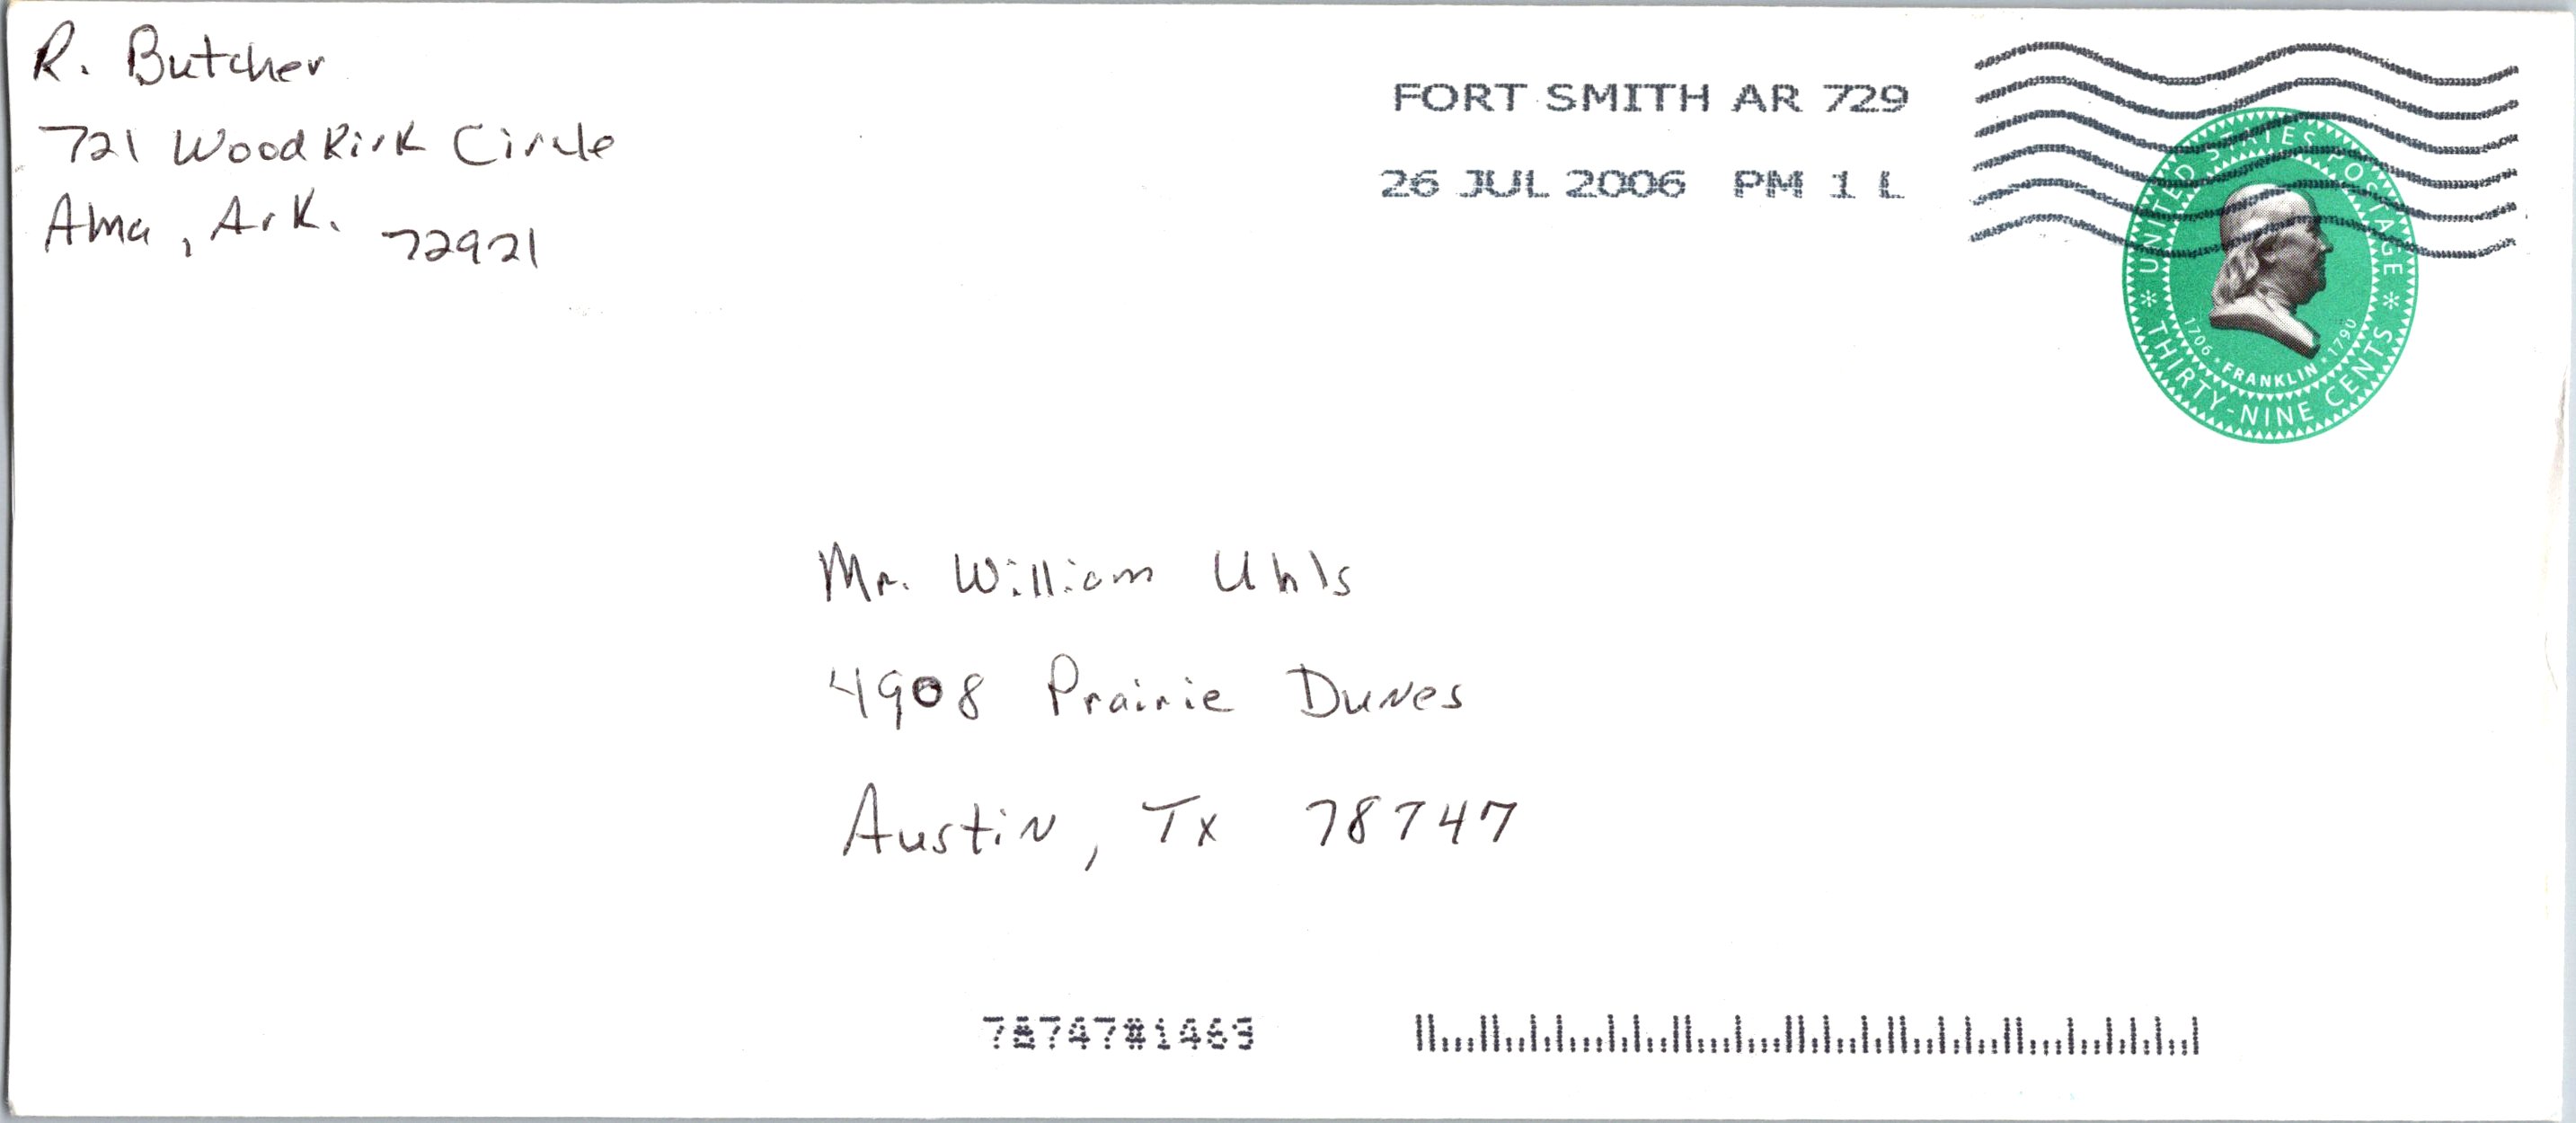 R. Butcher
721 WoodKirk Circle
Alma, Ark. 72921
FORT SMITH AR 729
26 JUL 2006 PM 1 L
UNITED STATES POSTAGE
1706 • FRANKLIN • 1790
THIRTY-NINE CENTS
Mr. William Uhls
4908 Prairie Dunes
Austin, Tx 78747
78747#1469